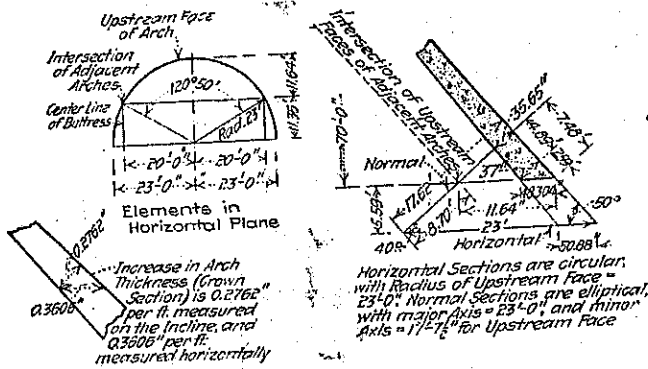 Upstream Face
of Arch
Intersection
of Adjacent
Arches
Center Line
of Buttress
120°50'
Rad. 23'
11.64'
11.36'
20'-0" 20'-0"
23'-0" 23'-0"
Elements in
Horizontal Plane
0.2762"
0.3606"
Increase in Arch
Thickness (Crown
Section) is 0.2762"
per ft. measured
on the Incline, and
0.3606" per ft.
measured horizontally
Intersection of Upstream
Faces of Adjacent Arches
35.65"
7.48'
4.89'
70'-0"
Normal
37"
17.62'
6.59'
8.70'
11.64"
23'
50°
40°
Horizontal
50.88"
Horizontal Sections are circular,
with Radius of Upstream Face =
23'-0". Normal Sections are elliptical,
with major Axis = 23'-0", and minor
Axis = 17'-7½" for Upstream Face